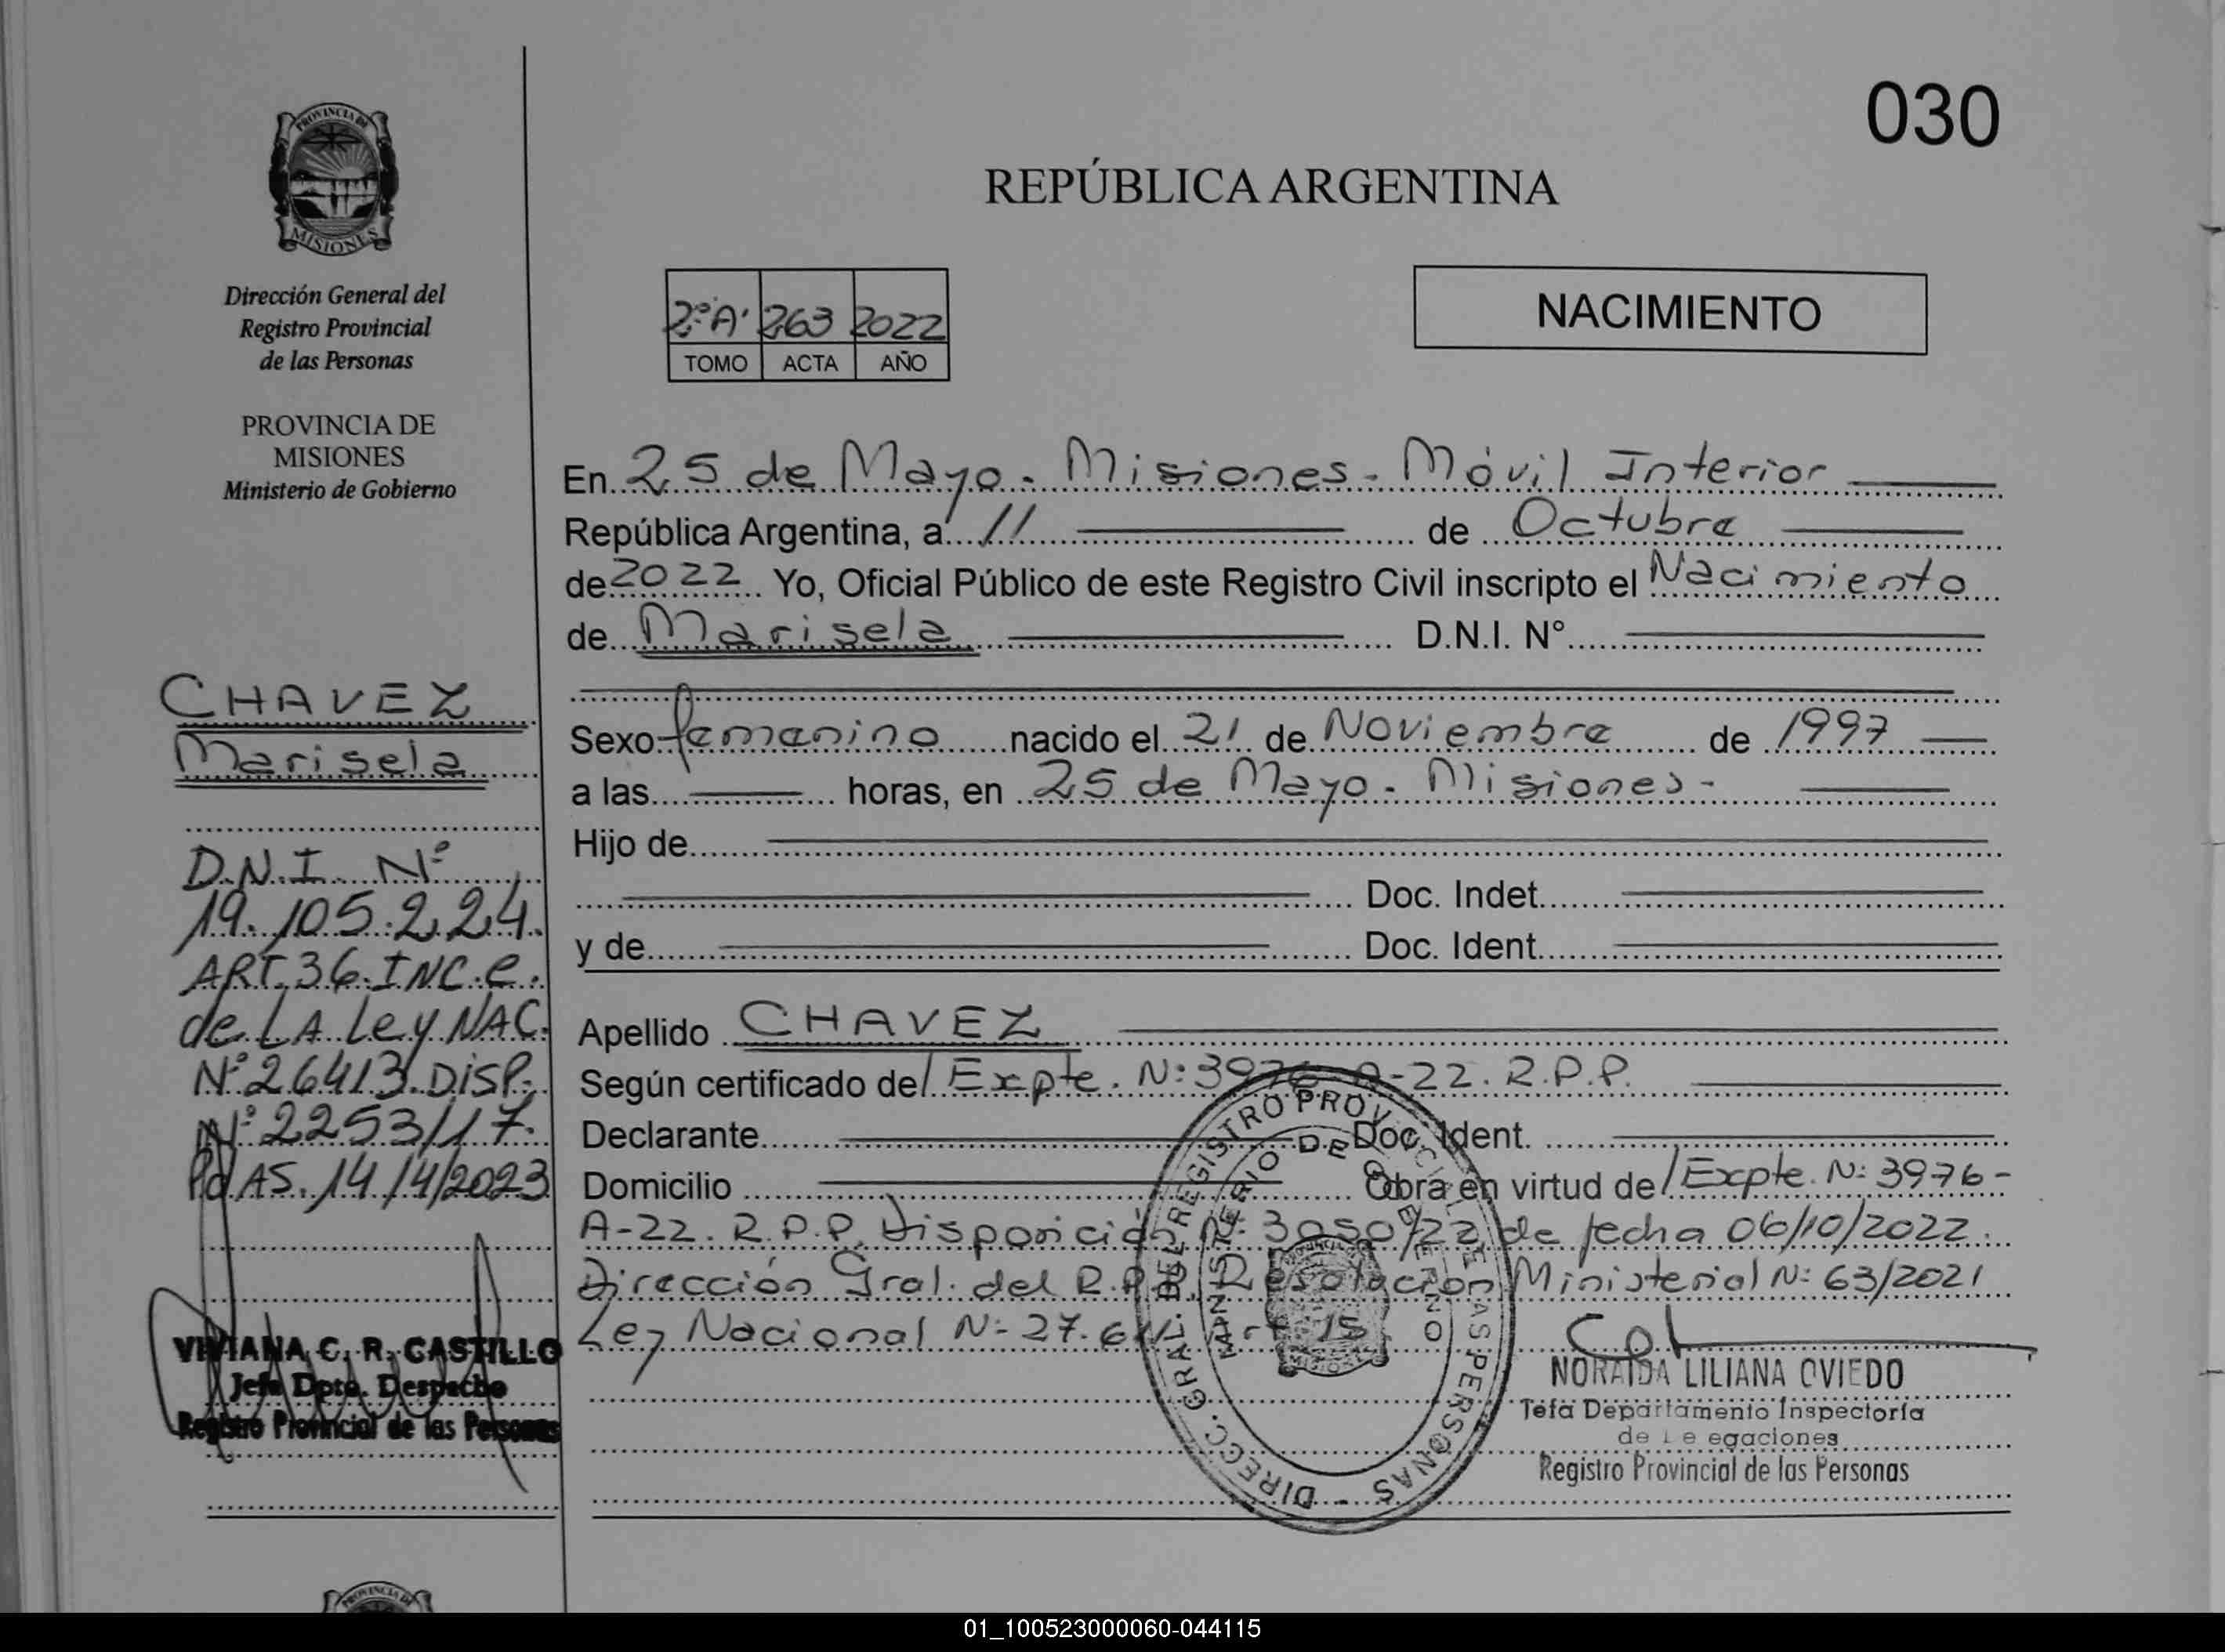 030
PROVINCIA DE
MISIONES
REPÚBLICA ARGENTINA
Dirección General del
Registro Provincial
de las Personas
PROVINCIA DE
MISIONES
Ministerio de Gobierno
2º"A" 263 2022
TOMO ACTA AÑO
NACIMIENTO
En 25 de Mayo - Misiones - Móvil Interior
República Argentina, a 11 de Octubre
de 2022 Yo, Oficial Público de este Registro Civil inscripto el Nacimiento
de Marisela D.N.I. N°
Sexo femenino nacido el 21 de Noviembre de 1997
a las horas, en 25 de Mayo - Misiones -
Hijo de
Doc. Indet.
y de Doc. Ident.
Apellido CHAVEZ
Según certificado de/ Expte. Nº 3976-A-22. R.P.P.
Declarante Doc. Ident.
Domicilio Obra en virtud de/ Expte. Nº 3976-
A-22. R.P.P. Disposición Nº 3050/22 de fecha 06/10/2022.
Dirección Gral. del Resolución Ministerial Nº 63/2021
Ley Nacional Nº 27. 15
CHAVEZ
Marisela
D.N.I. Nº
19.105.224.
ART.36.INC.e.
de LA Ley NAC.
Nº26413.DISP.
Nº2253/17.
PdAS. 14/4/2023
VIVIANA C. R. CASTILLO
Jefa Dpto. Despacho
Registro Provincial de las Personas
DIRECC. GRAL. DEL REGISTRO PROVINCIAL DE LAS PERSONAS
MINISTERIO DE GOBIERNO
NORAIDA LILIANA OVIEDO
Jefa Departamento Inspectoría
de egaciones
Registro Provincial de las Personas
PROVINCIA DE
01_100523000060-044115